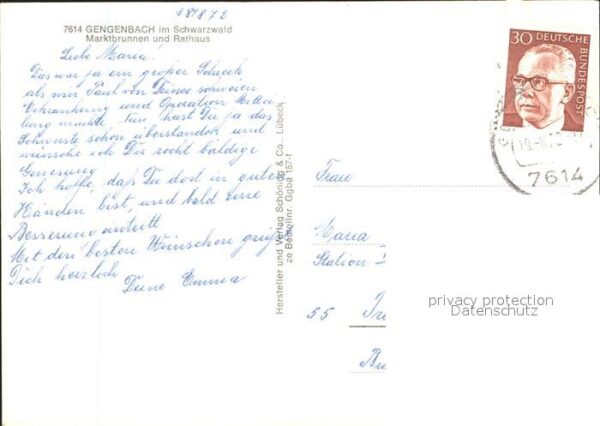 7614 GENGENBACH im Schwarzwald
Marktbrunnen und Rathaus
Liebe Maria!
Das war ja ein großer Schreck
als mir Paul von Deiner schweren
Erkrankung und Operation Mittei
lung machte. Nun hast Du ja das
Schwerste schon überstanden und
wünsche ich Dir recht baldige
Genesung
Ich hoffe, daß Du dort in guten
Händen bist, und bald eine
Besserung eintritt
Mit den besten Wünschen grüße
Dich herzlich
Deine Emma
Hersteller und Verlag Schöning & Co., Lübeck
ze Bestellnr. Ggba 157-f
30 DEUTSCHE
BUNDESPOST
7614
Frau
Maria
Station
55 Tri
Br
privacy protection
Datenschutz